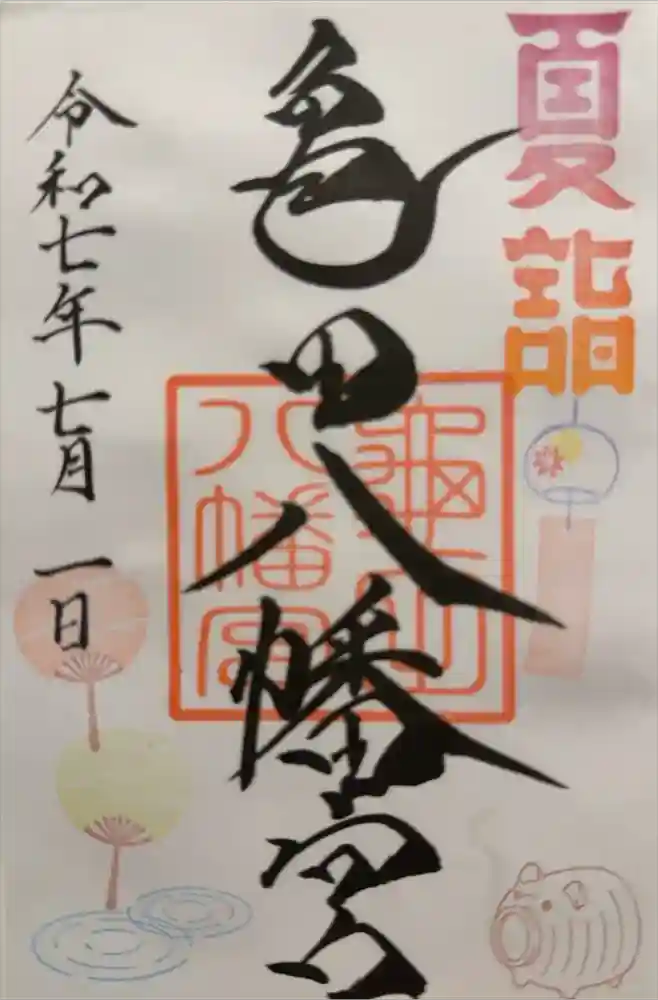 夏詣
亀山八幡宮
令和七年七月一日
龜山
八幡宮